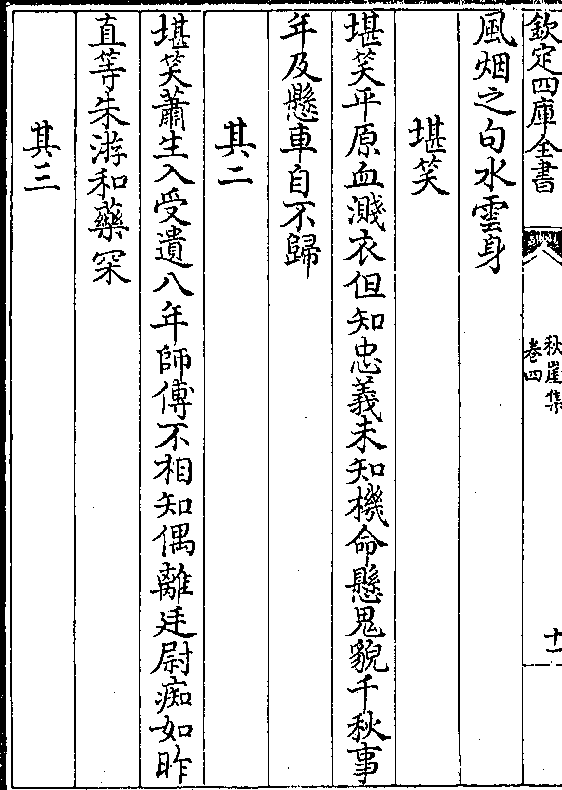 欽定四庫全書
秋崖集
卷四
十一
風烟之句水雲身
堪笑
堪笑平原血濺衣但知忠義未知機命懸鬼貌千秋事
年及懸車自不歸
其二
堪笑蕭生入受遺八年師傅不相知偶離廷尉痴如昨
直等朱游和藥罙
其三